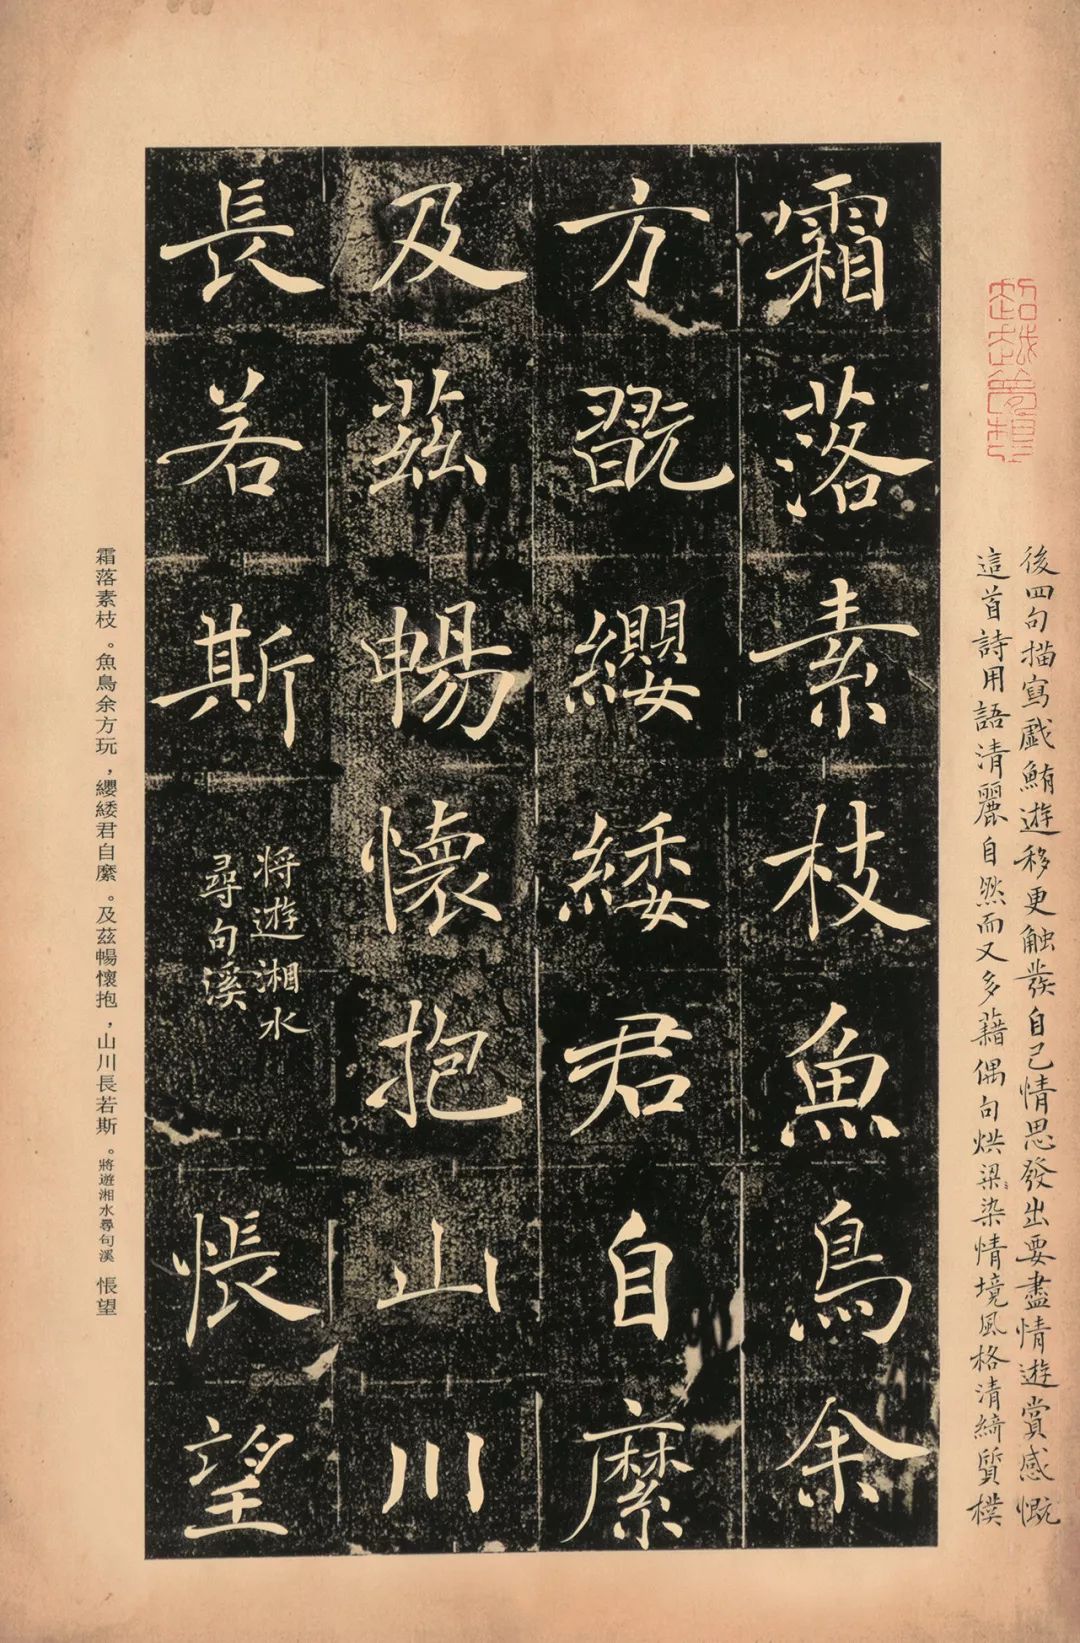 後四句描寫戲鮪遊移更觸發自己情思發出要盡情遊賞感慨
這首詩用語清麗自然而又多藉偶句烘梁染情境風格清綺質樸
霜落素枝魚鳥余
方翫纓緌君自縻
及茲暢懷抱山川
長若斯
將遊湘水
尋句溪
悵望
霜落素枝。魚鳥余方玩，纓緌君自縻。及茲暢懷抱，山川長若斯。將遊湘水尋句溪 悵望